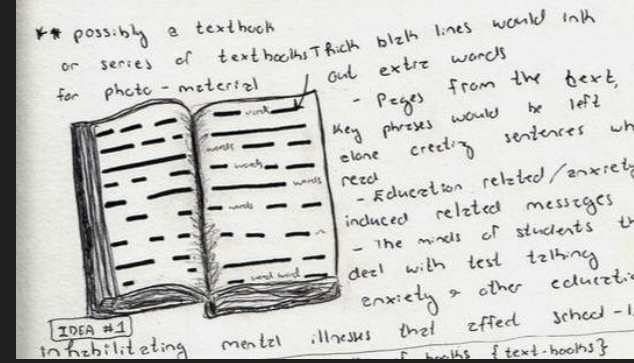 ** possibly a textbook
or series of textbooks
for photo-material
Thick blak lines would ink
out extra words
- Pages from the text,
key phrases would be left
alone creating sentences wh
read
- Education related/anxiety
induced related messages
- The minds of students th
deal with test talking
anxiety & other educatio
word
words
words
words
words
word word
IDEA #1
inhabilitating mental illnesses that affect school-l
books {text-books}